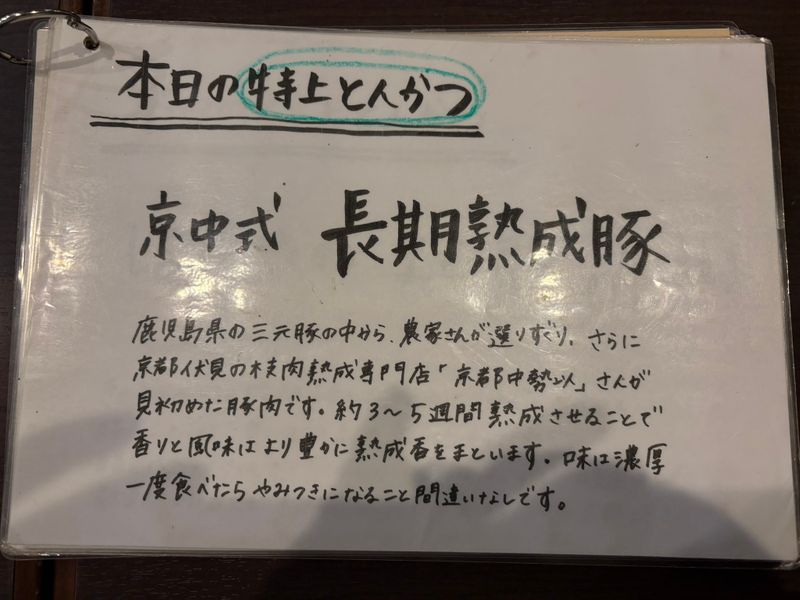 本日の特上とんかつ
京中式 長期熟成豚
鹿児島県の三元豚の中から、農家さんが選りすぐり、さらに
京都伏見の枝肉熟成専門店「京都中勢以」さんが
見初めた豚肉です。約3〜5週間熟成させることで
香りと風味はより豊かに熟成香を手といます。味は濃厚
一度食べたらやみつきになること間違いなしです。